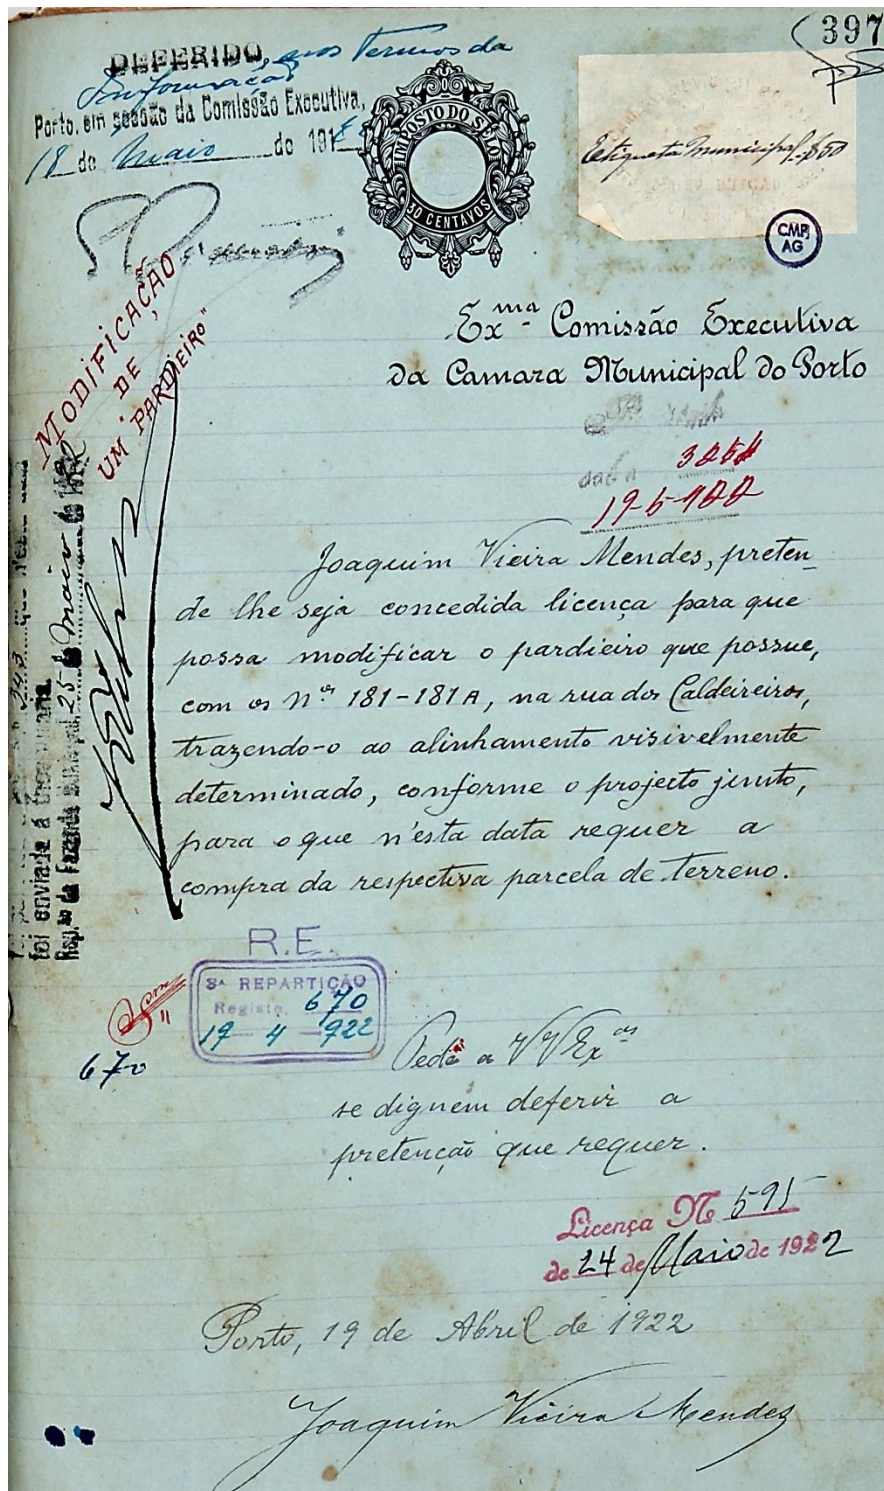 397
DEFERIDO, nos Termos da
Informação
Porto, em sessão da Comissão Executiva,
18 de Maio de 191
IMPOSTO DO SELO
30 CENTAVOS
Etiqueta Municipal - $50
CMP
AG
MODIFICAÇÃO
DE
UM "PARDIEIRO"
Exma Comissão Executiva
da Camara Municipal do Porto
19-5-922
Joaquim Vieira Mendes, preten-
de lhe seja concedida licença para que
possa modificar o pardieiro que possue,
com os Nos 181-181A, na rua dos Caldeireiros,
trazendo-o ao alinhamento visivelmente
determinado, conforme o projecto junto,
para o que n'esta data requer a
compra da respectiva parcela de terreno.
foi enviada á
Rep.ão da Fazenda Municipal, 25 de Maio de
R.E.
3ª REPARTIÇÃO
Registo 670
19-4-922
670
Pede a VV Exas
se dignem deferir a
pretenção que requer.
Licença Nº 595
de 24 de Maio de 1922
Porto, 19 de Abril de 1922
Joaquim Vieira Mendes